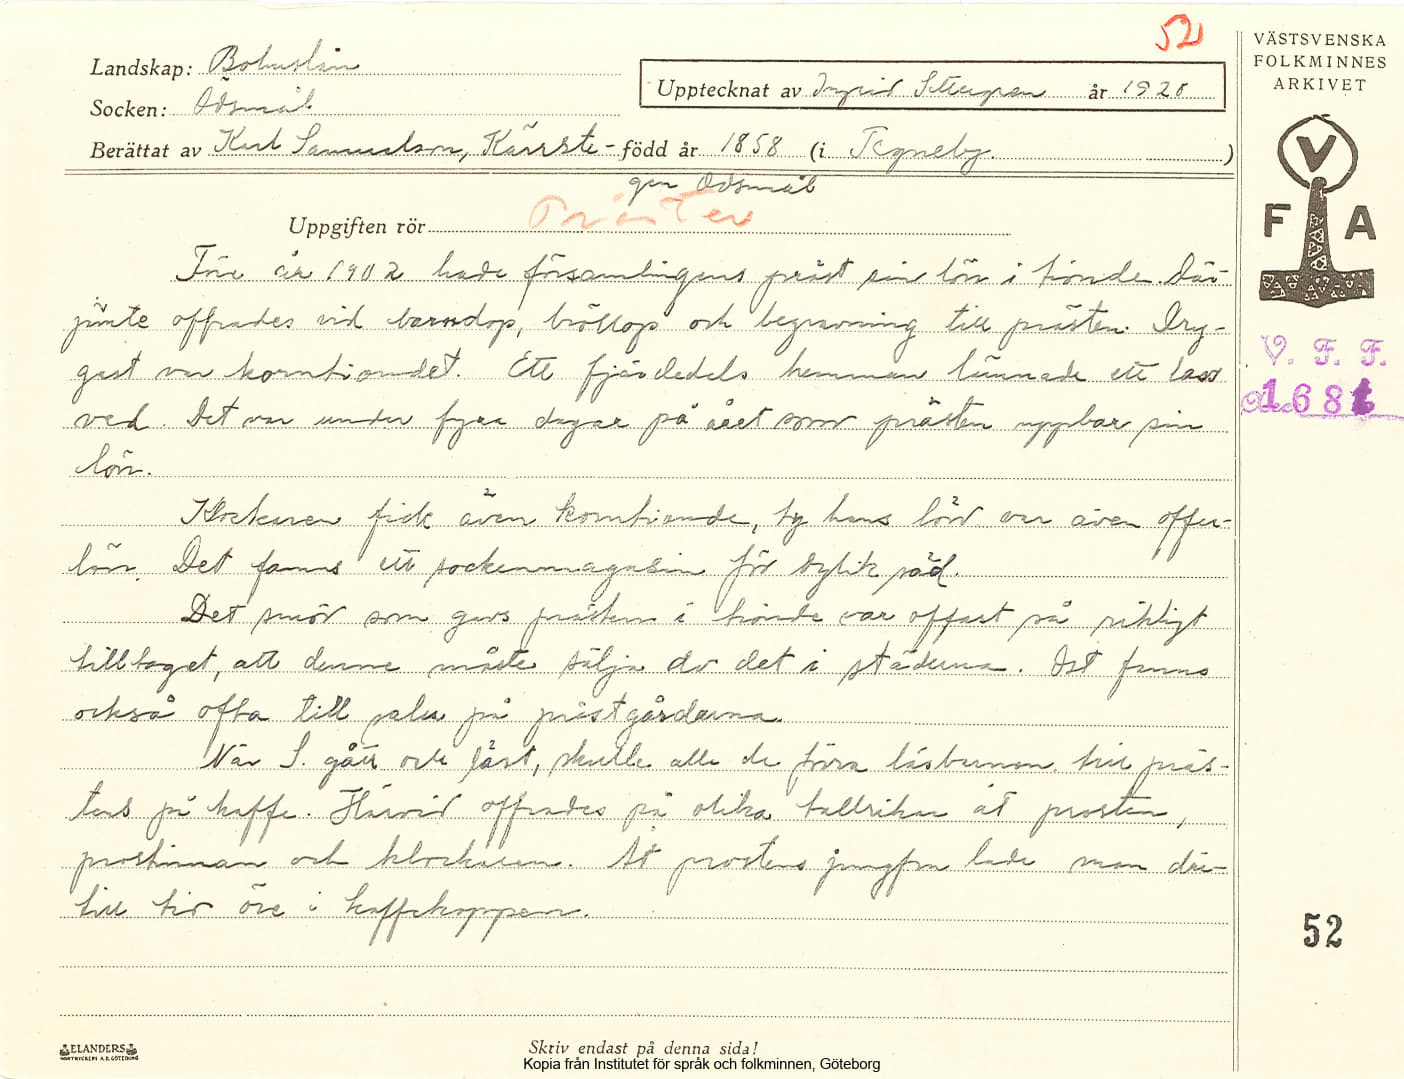 52
Landskap: Bohuslän
Socken: Ödsmål
Upptecknat av Ingrid år 1928
Berättat av Karl Samuelson, Kärrste- född år 1858 (i Tegneby.)
gen Ödsmål
Uppgiften rör Präster
Före år 1902 hade församlingens präst sin lön i tionde. Där-
jämte offrades vid barndop, bröllop och begravning till prästen. Dry-
gast var korntiondet. Ett fjärdedels hemman lämnade ett lass
ved. Det var under fyra dagar på året som prästen uppbar sin
lön.
Klockaren fick även korntionde, ty hans lön var även offer-
lön. Det fanns ett sockenmagasin för dylik säd.
Det smör som gavs prästen i tionde var oftast så rikligt
tilltaget, att denne måste sälja av det i städerna. Ost fanns
också ofta till salu på prästgårdarna.
När S. gått och läst, skulle alla de förra läsbarnen till präs-
tens på kaffe. Härvid offrades på olika tallrikar åt prosten,
prostinnan och klockaren. Åt prostens jungfru lade man där-
till tio öre i kaffekoppen.
VÄSTSVENSKA
FOLKMINNES
ARKIVET
V
F A
V. F. F.
168
52
ELANDERS
Skriv endast på denna sida!
Kopia från Institutet för språk och folkminnen, Göteborg